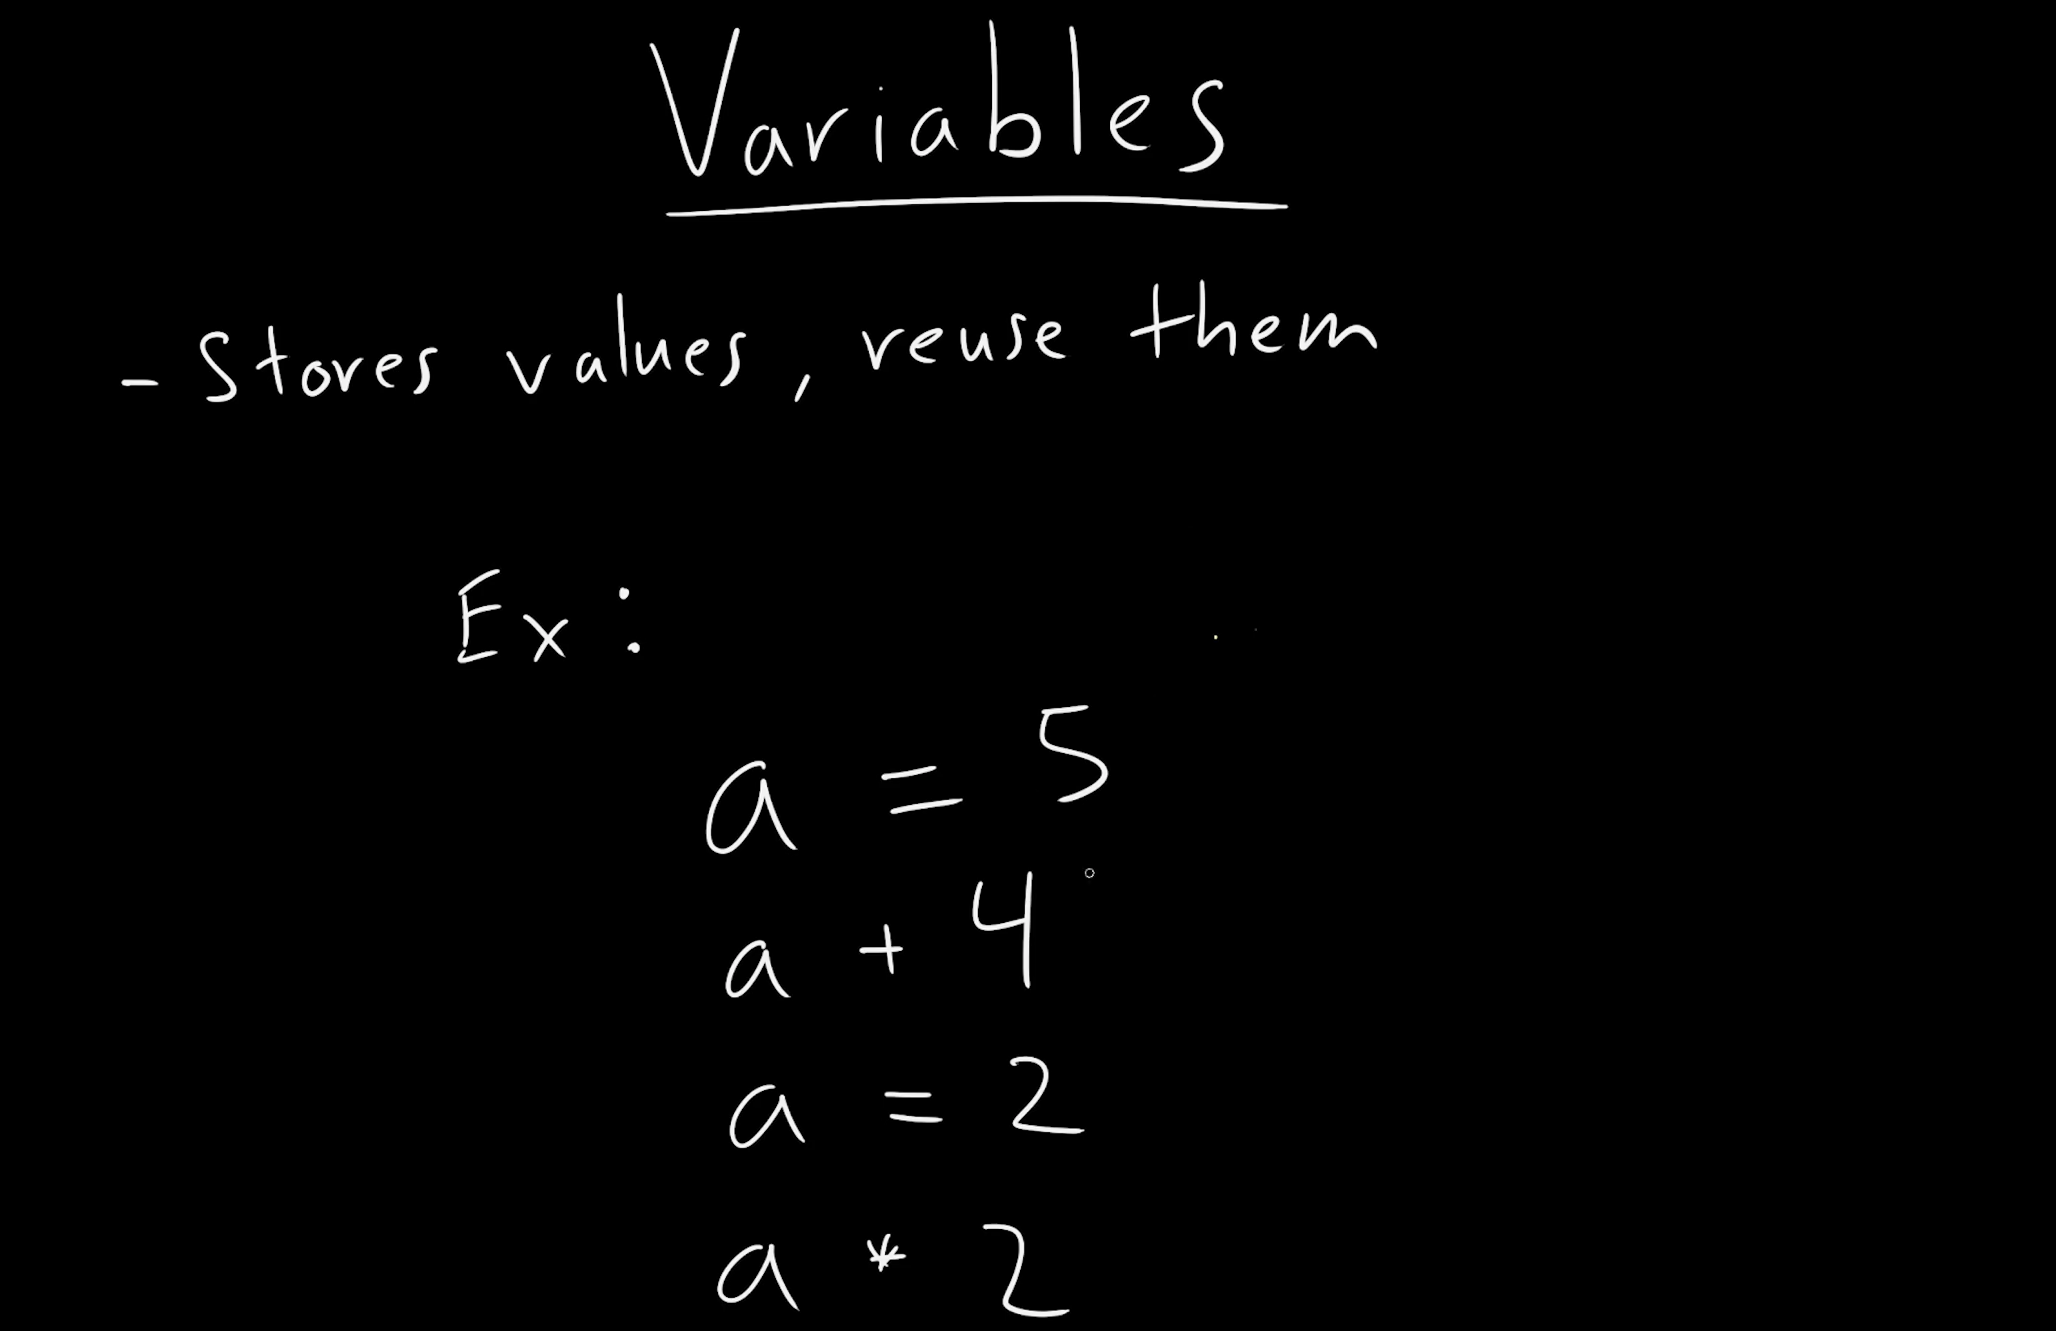 Variables
- Stores values, reuse them
Ex:
a = 5
a + 4
a = 2
a * 2